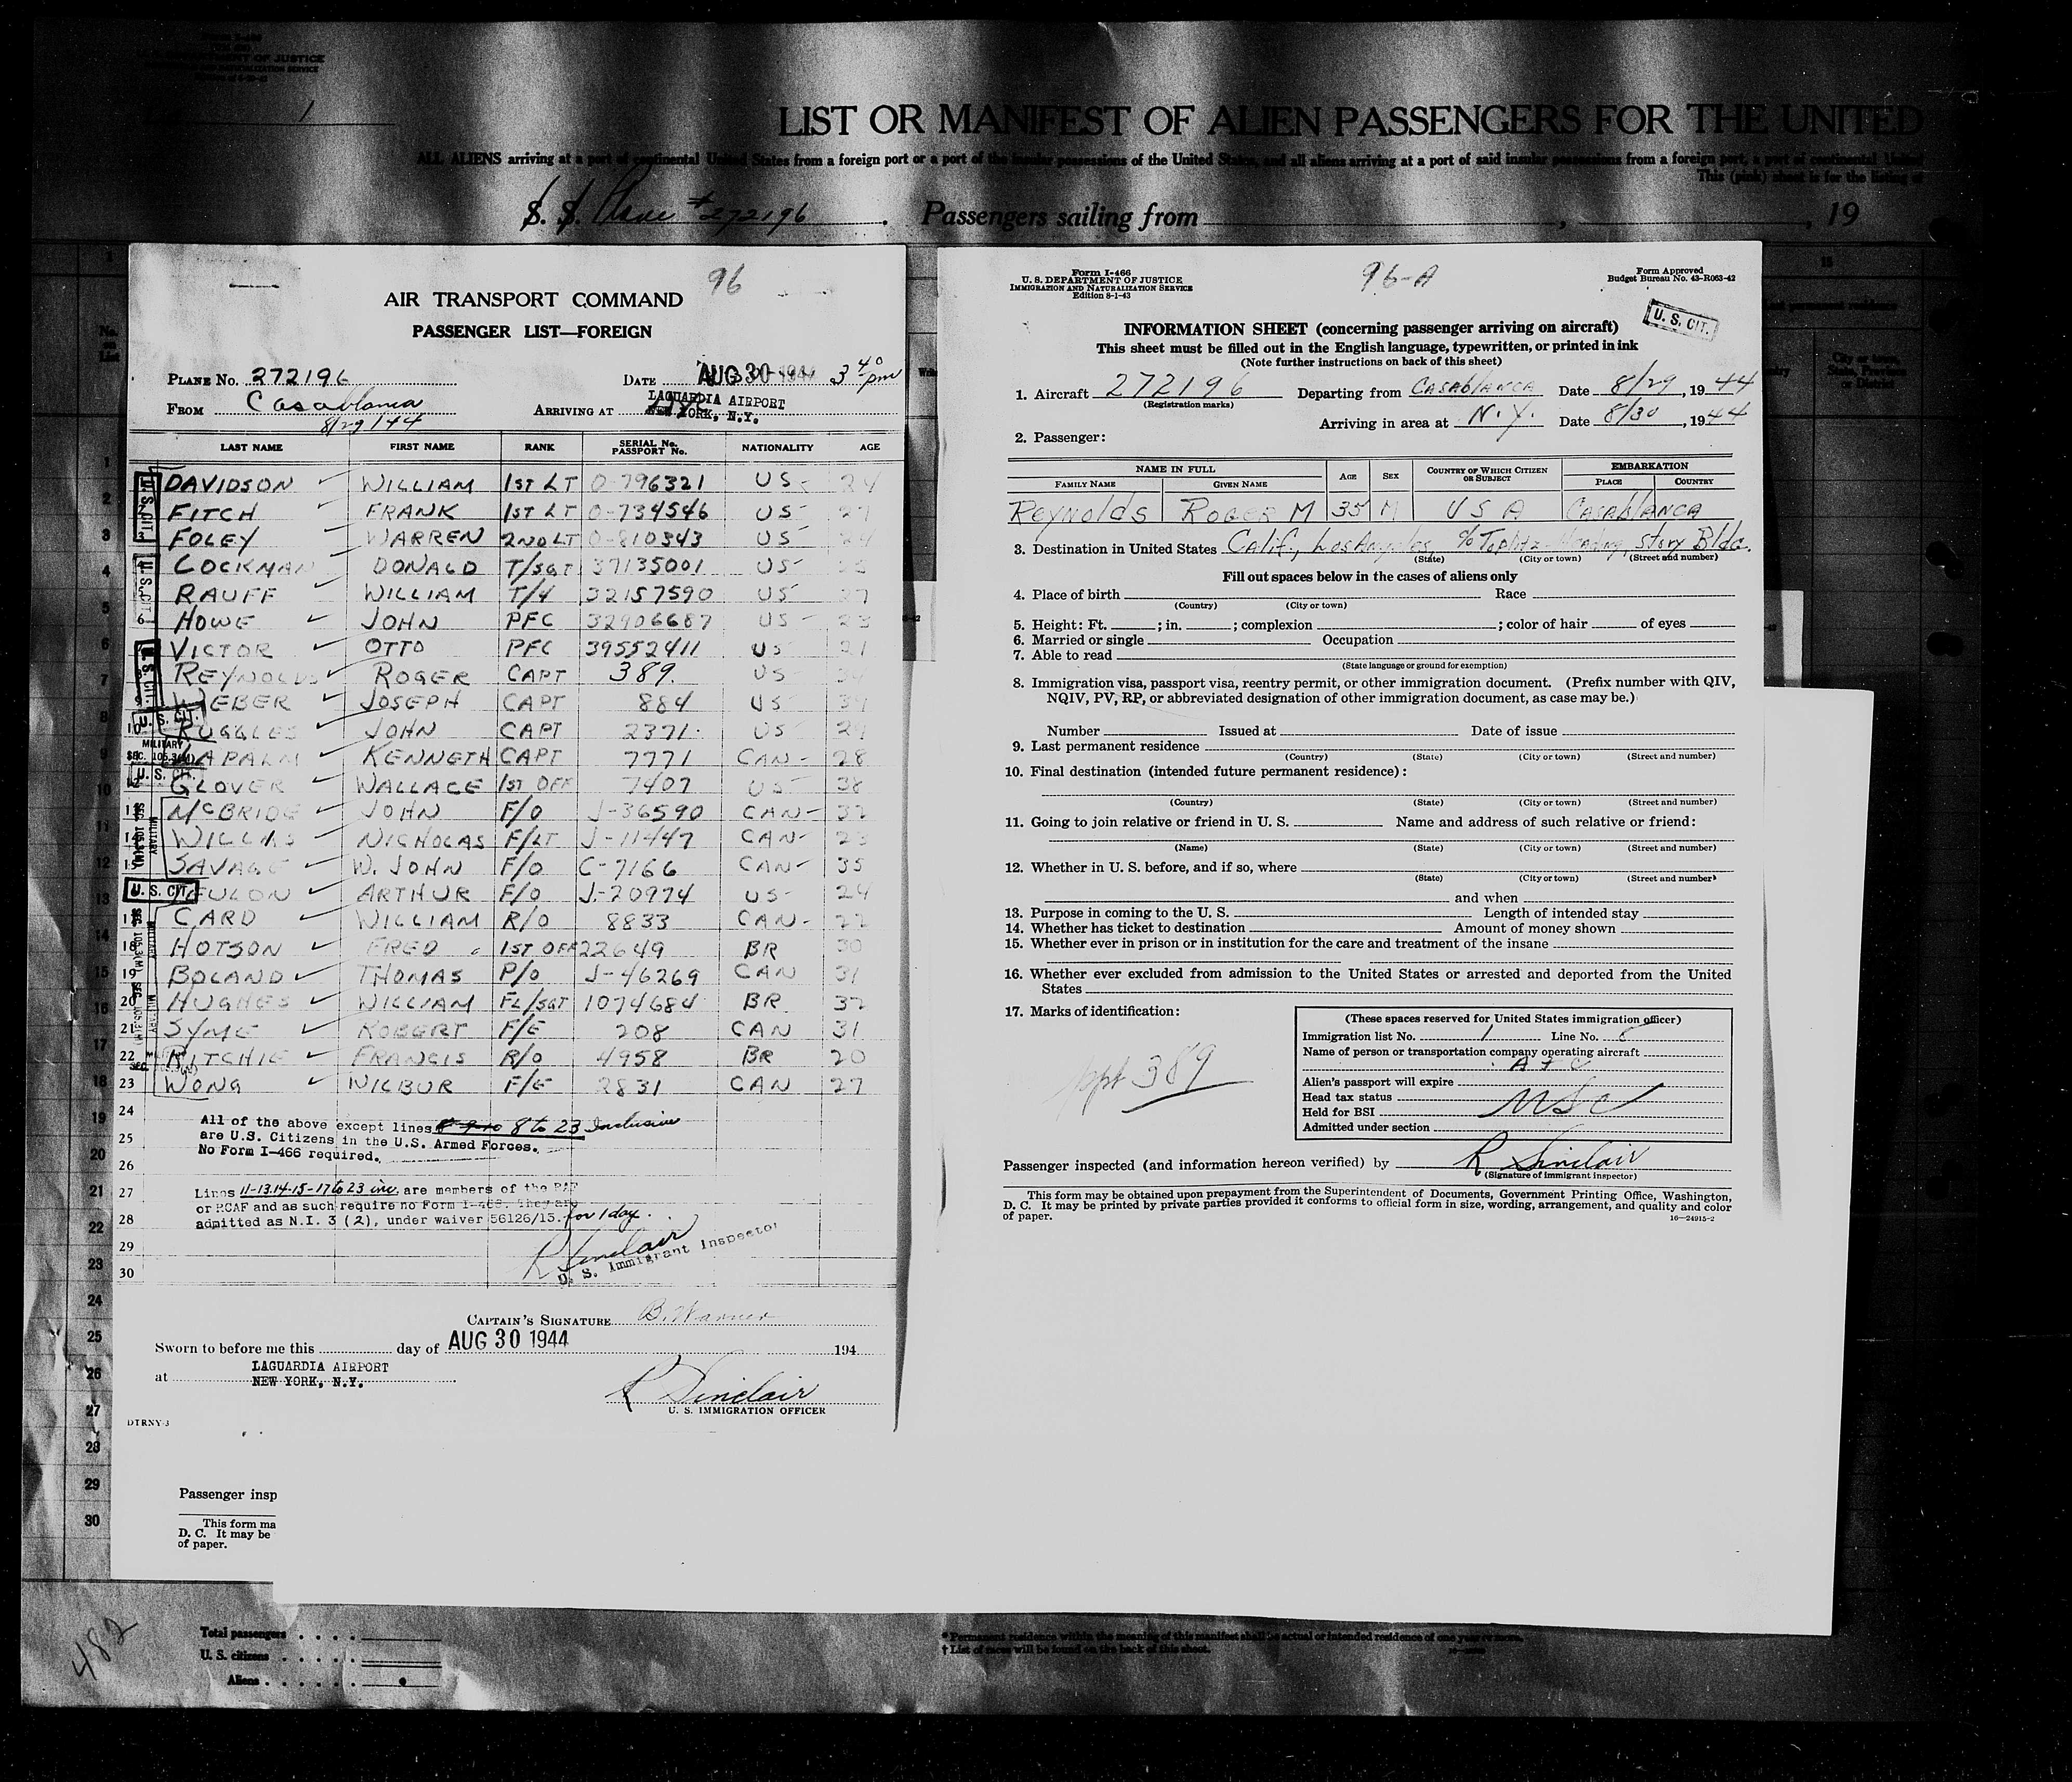 DEPARTMENT OF JUSTICE
1
LIST OR MANIFEST OF ALIEN PASSENGERS FOR THE UNITED
ALL ALIENS arriving at a port of continental United States from a foreign port or a port of the insular possessions of the United States, and all aliens arriving at a port of said insular possessions from a foreign port, a port of continental United
This (pink) sheet is for the listing of
S. S. Plane #272196 Passengers sailing from , , 19
96
AIR TRANSPORT COMMAND
PASSENGER LIST—FOREIGN
PLANE No. 272196 DATE AUG 30 1944 3 40 pm
FROM Casablanca ARRIVING AT LAGUARDIA AIRPORT
NEW YORK, N.Y.
8/29/44
LAST NAME FIRST NAME RANK SERIAL No. PASSPORT No. NATIONALITY AGE
DAVIDSON WILLIAM 1ST LT O-796321 US 24
FITCH FRANK 1ST LT O-734546 US 27
FOLEY WARREN 2ND LT O-810343 US 24
COCKMAN DONALD T/SGT 37135001 US
RAUFF WILLIAM T/4 32157590 US 27
HOWE JOHN PFC 32906687 US 23
VICTOR OTTO PFC 39552411 US 21
REYNOLDS ROGER CAPT 389 US
WEBER JOSEPH CAPT 884 US 39
RUGGLES JOHN CAPT 2371 US 29
LAPALM KENNETH CAPT 7771 CAN 28
GLOVER WALLACE 1ST OFF 7407 US 38
McBRIDE JOHN F/O J-36590 CAN 32
WILLIAS NICHOLAS F/LT J-11447 CAN 23
SAVAGE W. JOHN F/O C-7166 CAN 35
ARTHUR F/O J-20974 US 24
CARD WILLIAM R/O 8833 CAN 22
HOTSON FRED 1ST OFF 22649 BR 30
BOLAND THOMAS P/O J-46269 CAN 31
HUGHES WILLIAM FL/SGT 1074684 BR 32
SYME ROBERT F/E 208 CAN 31
RITCHIE FRANCIS R/O 4958 BR 20
WONG WILBUR F/E 2831 CAN 27
U. S. CIT.
MILITARY
SEC. 105.3(M)
All of the above except lines 8 to 23 Inclusive
are U.S. Citizens in the U.S. Armed Forces.
No Form I-466 required.
Lines 11-13-14-15-17 to 23 inc. are members of the RAF
or RCAF and as such require no Form I-466. They are
admitted as N.I. 3 (2), under waiver 56126/13. for 1 day.
R Sinclair
U. S. Immigrant Inspector
CAPTAIN'S SIGNATURE B. Warner
Sworn to before me this day of AUG 30 1944 194
LAGUARDIA AIRPORT
at NEW YORK, N.Y.
R Sinclair
U. S. IMMIGRATION OFFICER
DTRNY-3
Passenger insp
This form ma
D. C. It may be
of paper.
482
Total passengers
U. S. citizens
Aliens
96-A
Form I-466
U. S. DEPARTMENT OF JUSTICE
IMMIGRATION AND NATURALIZATION SERVICE
Edition 8-1-43
Form Approved
Budget Bureau No. 43-R063-42
U. S. CIT.
INFORMATION SHEET (concerning passenger arriving on aircraft)
This sheet must be filled out in the English language, typewritten, or printed in ink
(Note further instructions on back of this sheet)
1. Aircraft 272196 Departing from CASABLANCA Date 8/29, 1944
(Registration marks)
Arriving in area at N.Y. Date 8/30, 1944
2. Passenger:
NAME IN FULL AGE SEX COUNTRY OF WHICH CITIZEN OR SUBJECT EMBARKATION
FAMILY NAME GIVEN NAME PLACE COUNTRY
REYNOLDS ROGER M 35 M USA CASABLANCA
3. Destination in United States Calif., Los Angeles, Story Bldg.
(State) (City or town) (Street and number)
Fill out spaces below in the cases of aliens only
4. Place of birth Race
(Country) (City or town)
5. Height: Ft. ; in. ; complexion ; color of hair of eyes
6. Married or single Occupation
7. Able to read
(State language or ground for exemption)
8. Immigration visa, passport visa, reentry permit, or other immigration document. (Prefix number with QIV,
NQIV, PV, RP, or abbreviated designation of other immigration document, as case may be.)
Number Issued at Date of issue
9. Last permanent residence
(Country) (State) (City or town) (Street and number)
10. Final destination (intended future permanent residence):
(Country) (State) (City or town) (Street and number)
11. Going to join relative or friend in U. S. Name and address of such relative or friend:
(Name) (State) (City or town) (Street and number)
12. Whether in U. S. before, and if so, where
(State) (City or town) (Street and number)
and when
13. Purpose in coming to the U. S. Length of intended stay
14. Whether has ticket to destination Amount of money shown
15. Whether ever in prison or in institution for the care and treatment of the insane
16. Whether ever excluded from admission to the United States or arrested and deported from the United
States
17. Marks of identification:
ppt 389
(These spaces reserved for United States immigration officer)
Immigration list No. 1 Line No. 8
Name of person or transportation company operating aircraft
ATC
Alien's passport will expire
Head tax status
Held for BSI USC
Admitted under section
Passenger inspected (and information hereon verified) by R Sinclair
(Signature of immigrant inspector)
This form may be obtained upon prepayment from the Superintendent of Documents, Government Printing Office, Washington,
D. C. It may be printed by private parties provided it conforms to official form in size, wording, arrangement, and quality and color
of paper.
16—24915-2
* Permanent residence within the meaning of this manifest shall be actual or intended residence of one year or more.
† List of races will be found on the back of this sheet.